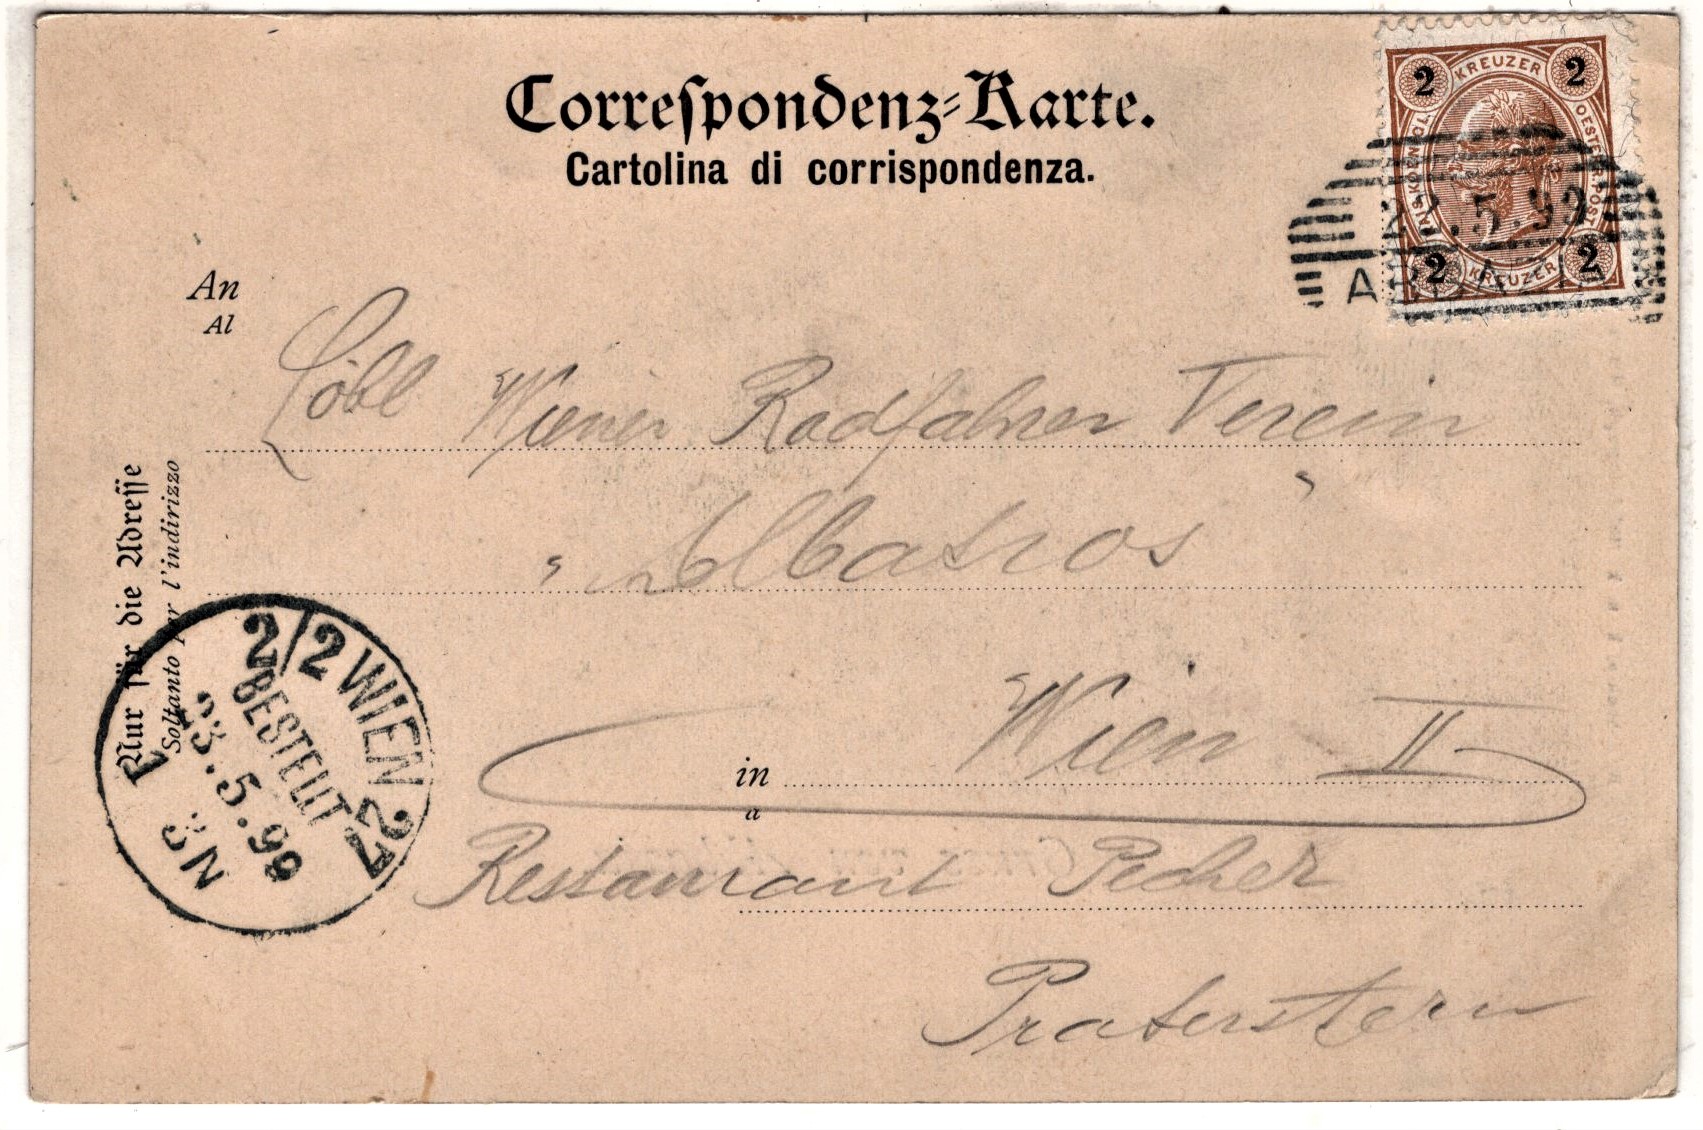 Correſpondenz-Karte.
Cartolina di corrispondenza.
2 KREUZER 2
KAIS. KOENIGL. OESTERR. POST
2 KREUZER 2
22.5.99
ABBAZIA
An
Al
Löbl Wiener Radfahrer Verein
„Albatros"
in Wien II
a
Restaurant Pecher
Praterstern
Nur für die Adreſſe
Soltanto per l'indirizzo
2/2 WIEN 2/2
BESTELLT
23.5.99
3N